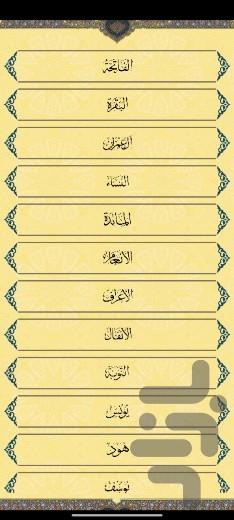 الفاتحة
البقرة
آل عمران
النساء
المائدة
الأنعام
الأعراف
الأنفال
التوبة
يونس
هود
يوسف